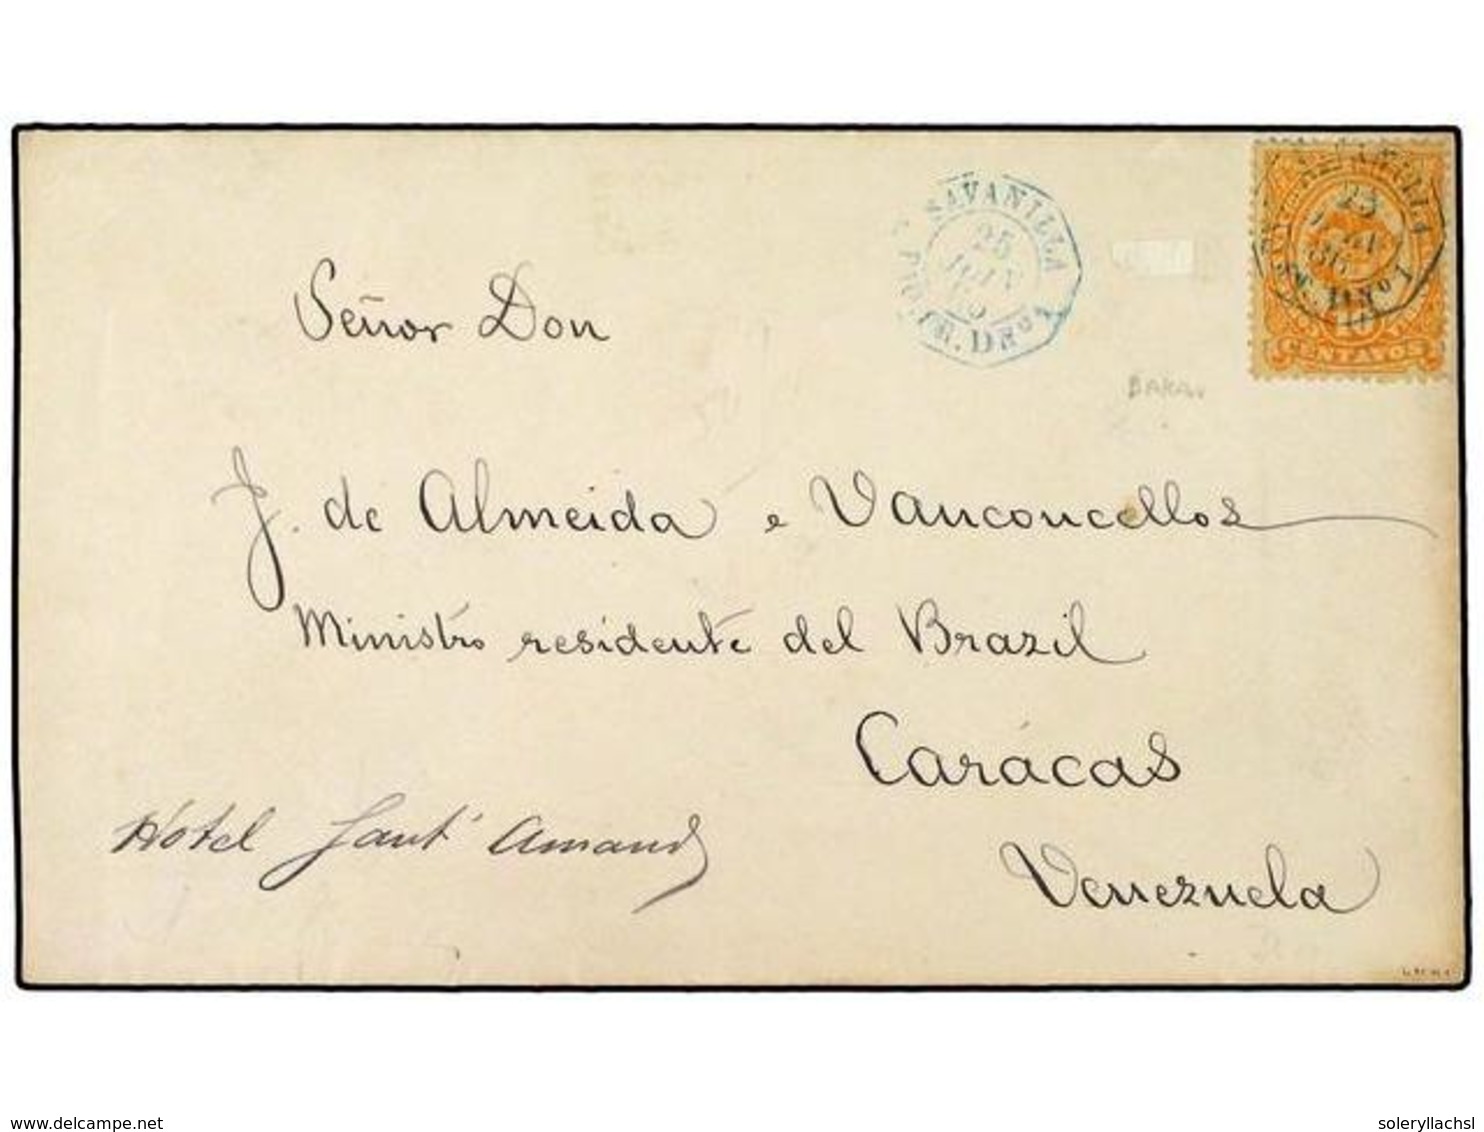 SAVANILLA
25
JUIN
PAQ. FR. D Nº 1
SAVANILLA
25
86
FR. D Nº 1
CENTAVOS
BARA.
Señor Don
J. de Almeida e Vanconcellos
Ministro residente del Brazil
Carácas
Venezuela
Hotel Sant' Amand
delcampe.net
soleryllachsl